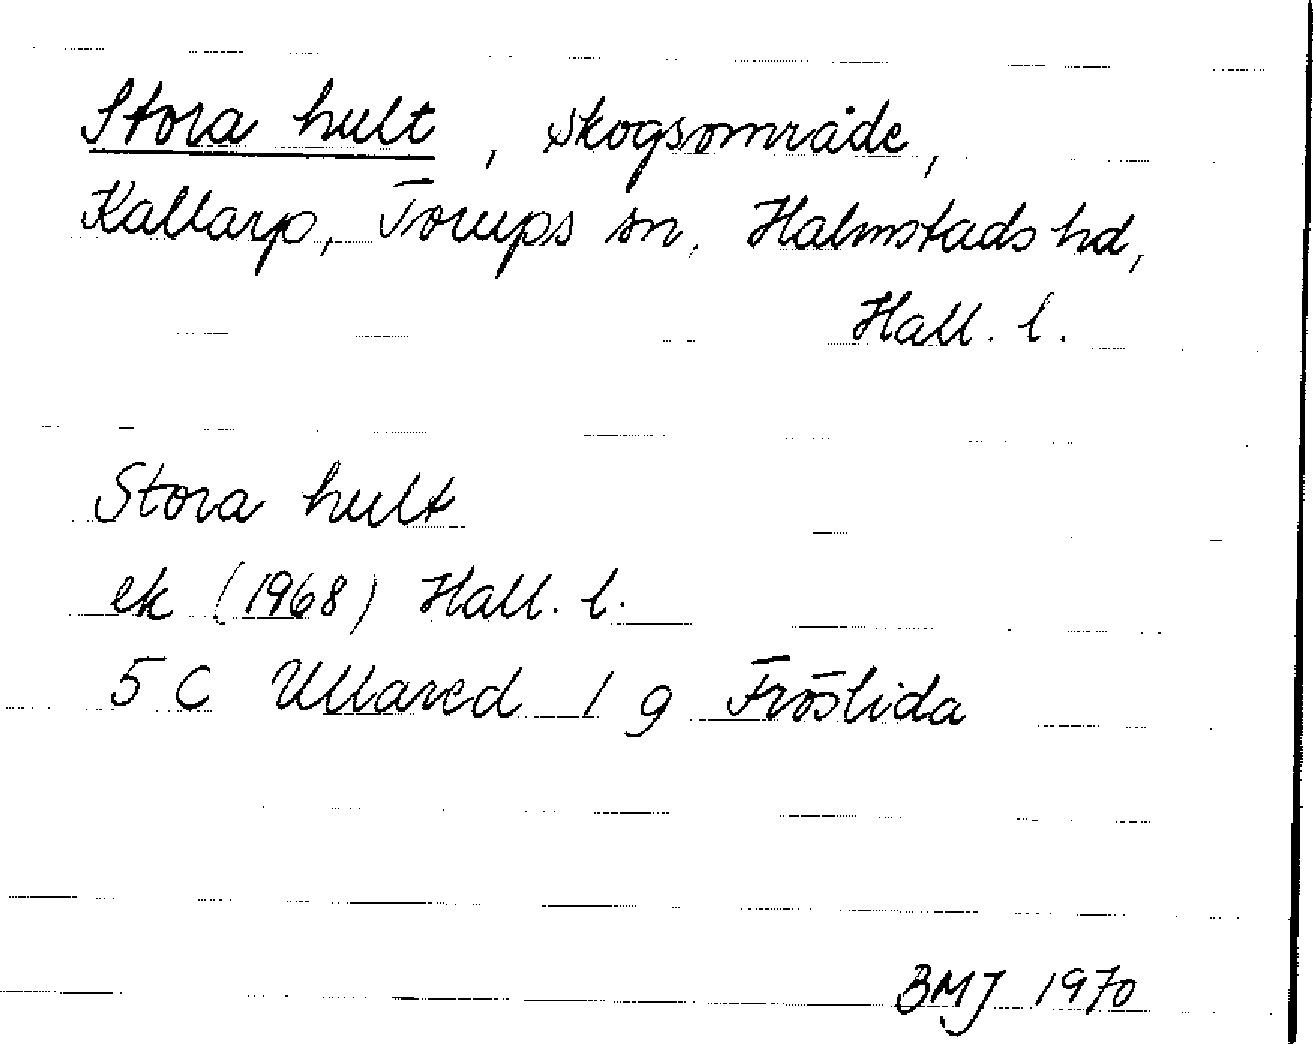 Stora hult, skogsområde,
Kallarp, Torups sn, Halmstads hd,
Hall. l.
Stora hult
ek (1968) Hall. l.
5 C Ullared 1 g Fröslida
BMJ 1970